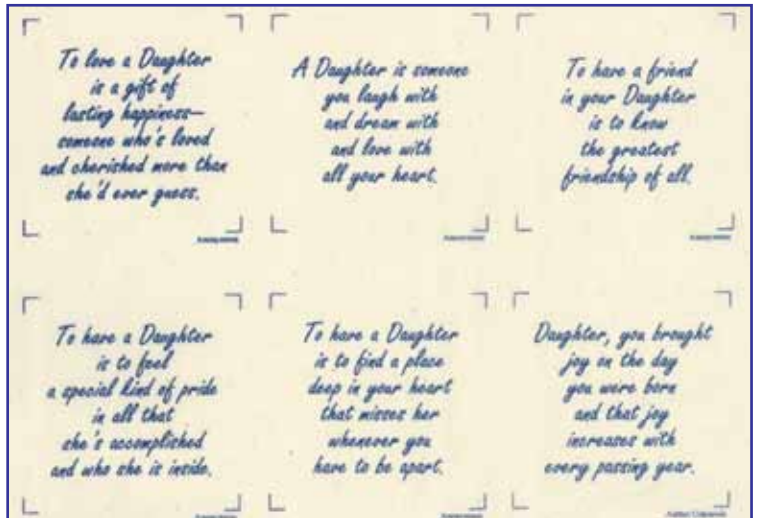 To love a Daughter
is a gift of
lasting happiness—
someone who's loved
and cherished more than
she'd ever guess.
A Daughter is someone
you laugh with
and dream with
and love with
all your heart.
To have a friend
in your Daughter
is to know
the greatest
friendship of all.
To have a Daughter
is to feel
a special kind of pride
in all that
she's accomplished
and who she is inside.
To have a Daughter
is to find a place
deep in your heart
that misses her
whenever you
have to be apart.
Daughter, you brought
joy on the day
you were born
and that joy
increases with
every passing year.